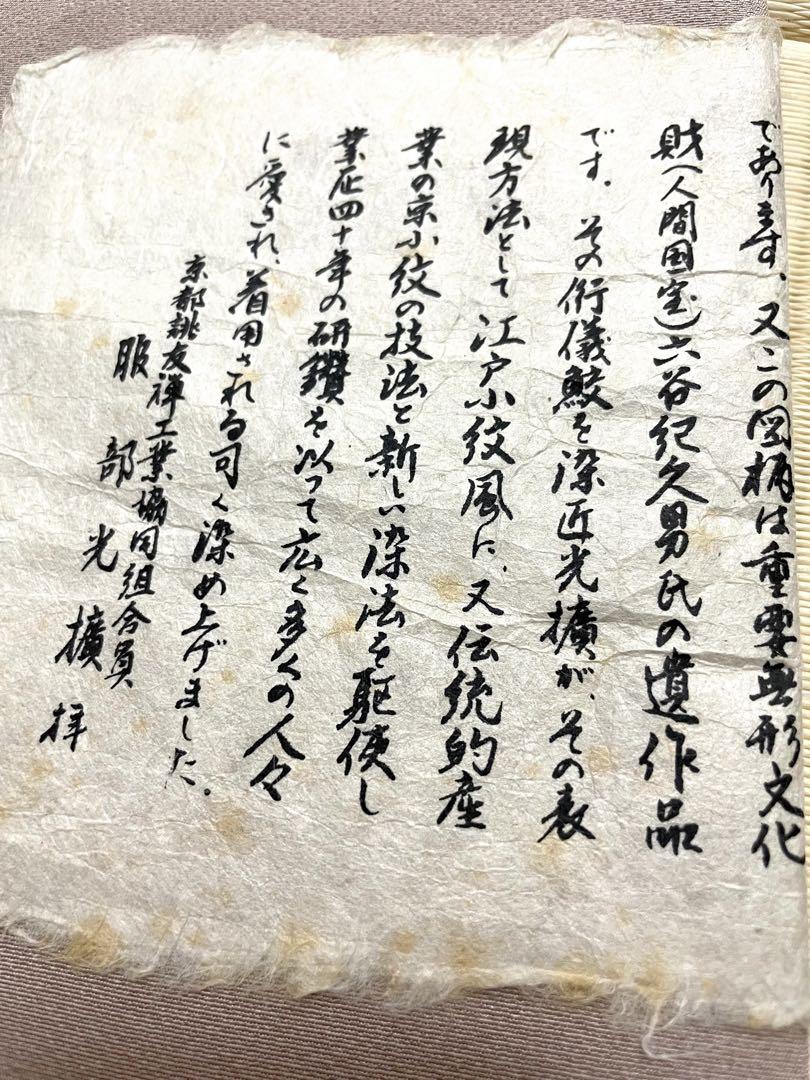 であります。又この図柄は重要無形文化
財(人間国宝)六谷紀久男氏の遺作品
です。その術儀鮫を染匠光擴が、その表
現方法として江戸小紋風に、又伝統的産
業の京小紋の技法と新しい染法を駆使し
業歴四十年の研鑽を以って広く多くの人々
に愛され、着用される可く染め上げました。
京都誂友禅工業協同組合員
服部光擴拝